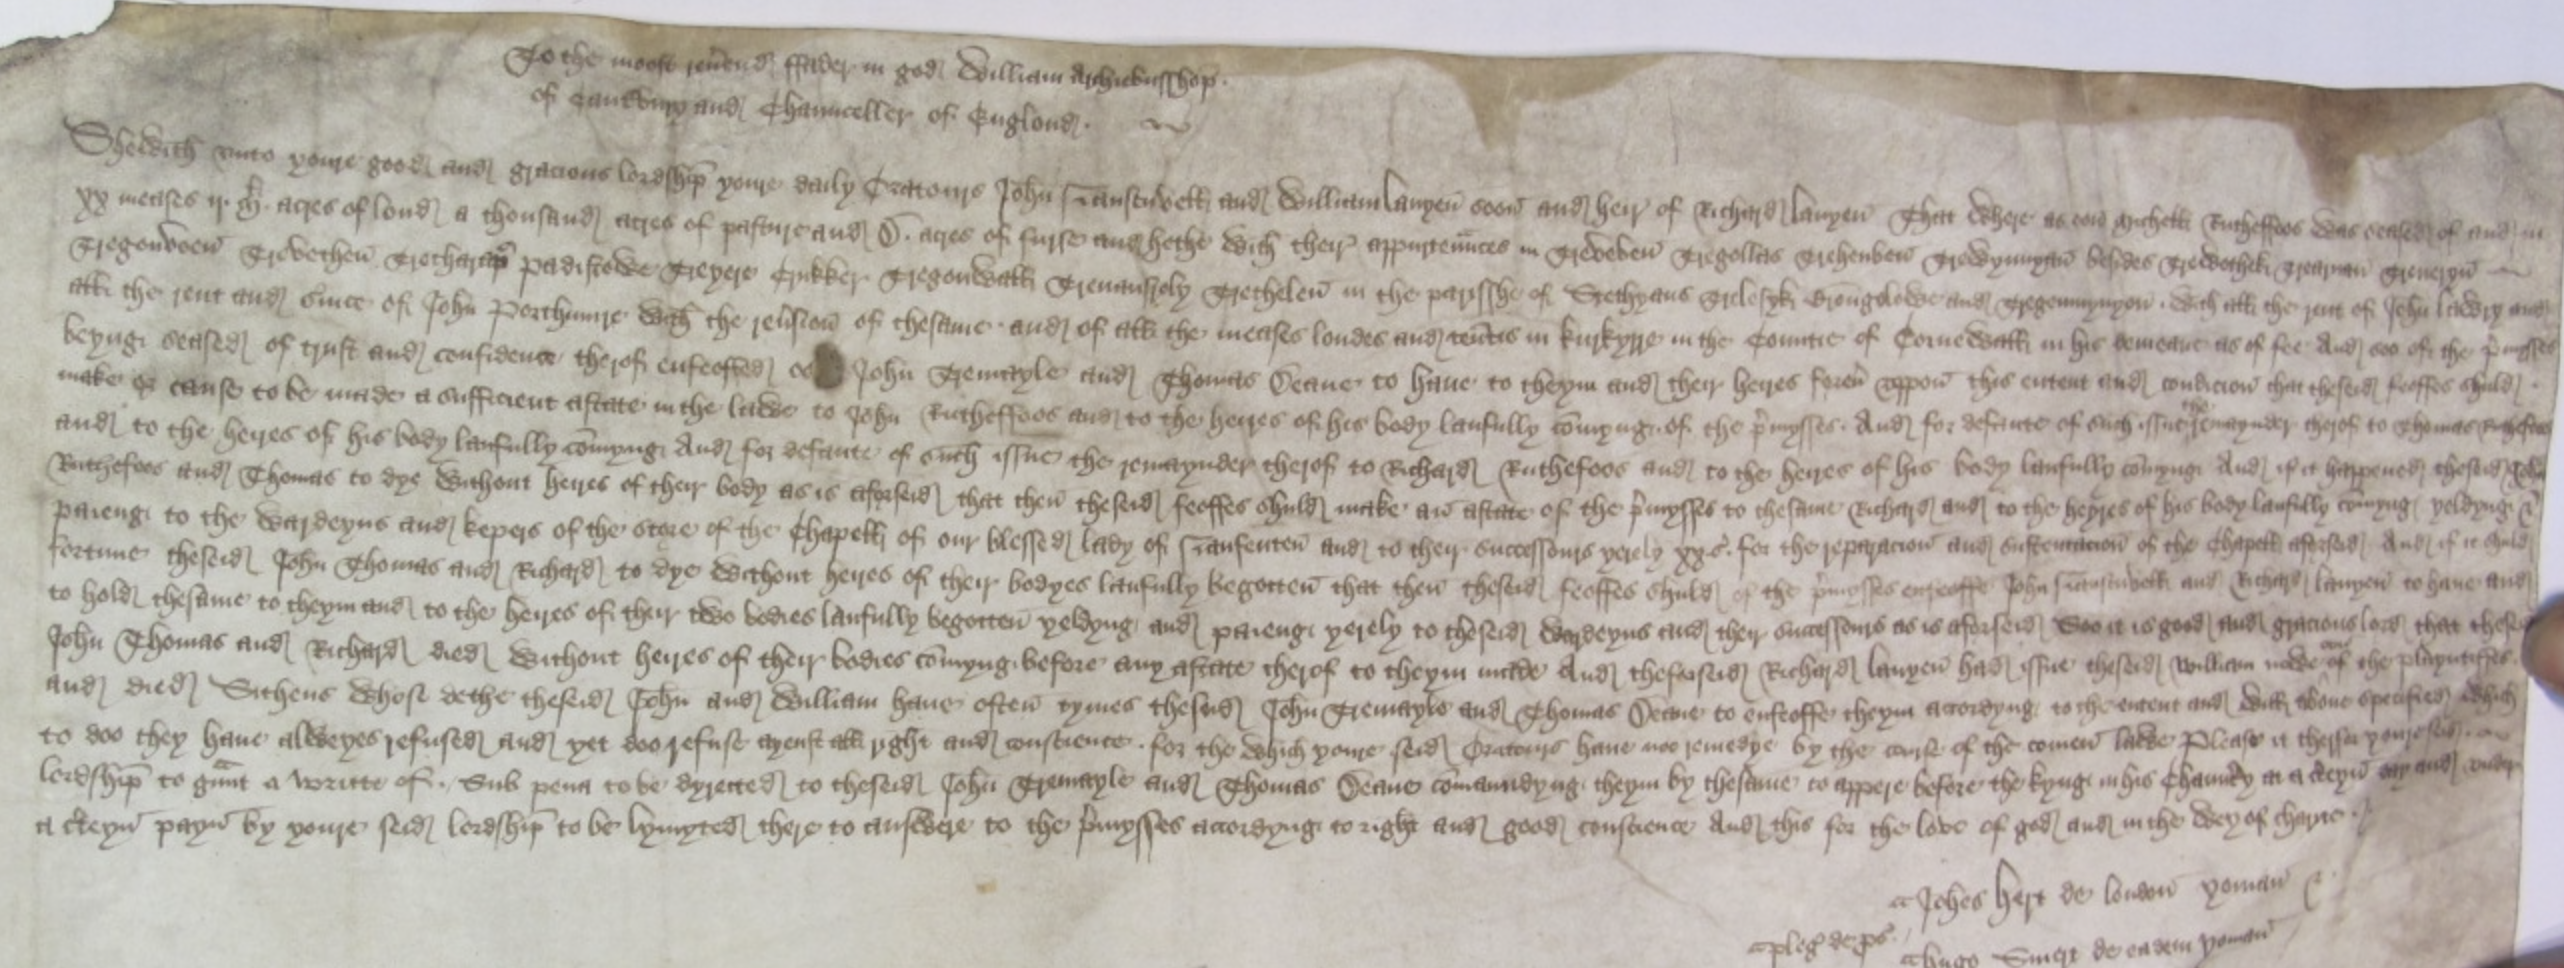 To the moost reu'end ffader in god William Archiebusshop
of Caunt'bury and Chaunceller of Englond
Shewith vnto youre good and gracious lordship youre daily Oratours John and William lanyen soon and heir of Richard lanyen That where as oon Michell Rutheffoos was seased of and in
xx meases ij Ml acres of lond a thousand acres of pasture and D acres of furse and hethe with their appurtenn'ces in Treveben Tregollas Trehenben besides
Padistowe Treyere Crukker Tregonwall Trethelen in the parisshe of and with all the rent of John lawry and
all the rent and s'uice of John with the reu'sion of thesame and of all the meases londes and ten'tis in in the Countie of Cornewall in his demeane as of fee And soo of the p'mysses
beyng seased of trust and confidence therof enfeoffed John Tremayle and Thomas Deane to haue to theym and their heyres foreu' vppon this entent and condicion that theseid feoffes shuld
make or cause to be made a sufficient astate in the lawe to John Rutheffoos and to the heyres of his body laufully comyng of the p'mysses And for defaute of such issue the remaynder therof to Thomas Rutheffoos
and to the heyres of his body laufully comyng And for defaute of such issue the remaynder therof to Richard Ruthefoos and to the heyres of his body laufully comyng And if it happened theseid John
Ruthefoos and Thomas to dye without heyres of their body as is aforseid that then theseid feoffes shuld make an astate of the p'mysses to thesame Richard and to the heyres of his body laufully comyng yeldyng &
paieng to the wardeyns and kepers of the store of the Chapell of our blessed lady of and to their successours yerely xx s. for the reparacion and sustentacion of the Chapell aforseid And if it shuld
fortune theseid John Thomas and Richard to dye without heyres of their bodyes laufully begotten that then theseid feoffes shuld of the p'mysses enfeoffe John and Richard lanyen to haue and
to hold thesame to theym and to the heyres of their two bodies laufully begotten yeldyng and paieng yerely to theseid wardeyns and their successours as is aforseid Soo it is good and gracious lord that theseid
John Thomas and Richard died without heyres of their bodies comyng before any astate therof to theym made And theforseid Richard lanyen had issue theseid William nowe oon of the playntiffes
and died Sithens whose dethe theseid John and William haue often tymes theseid John Tremayle and Thomas Deane to enfeoffe theym accordyng to the entent and will aboue specified which
to doo they haue alweyes refused and yet doo refuse ayenst all right and conscience for the which youre seid Oratours haue noo remedye by the course of the comen lawe Please it therfor youre seid
lordship to g'unt a writte of Sub pena to be dyrected to theseid John Tremayle and Thomas Deane comaundyng theym by thesame to appere before the kyng in his Chauncery at a c'teyn day and vnder
a c'teyn payn by youre seid lordship to be lymyted there to answere to the p'mysses accordyng to right and good conscience And this for the love of god and in the wey of charite
Joh'es hert de london yoman
pleg' de p's'
hugo Smert de eadem yoman